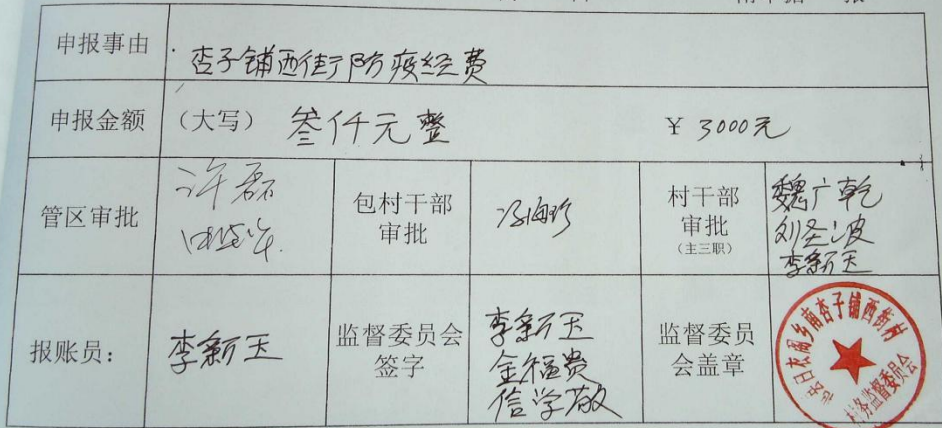 申报事由
杏子铺西街防疫经费
申报金额
（大写） 叁仟元整 ￥ 3000元
管区审批
许磊
包村干部
审批
冯海珍
村干部
审批
（主三职）
魏广乾
刘圣波
李新玉
报账员：
李新玉
监督委员会
签字
李新玉
金福贵
信学敬
监督委员
会盖章
乡南杏子铺西街村
村务监督委员会